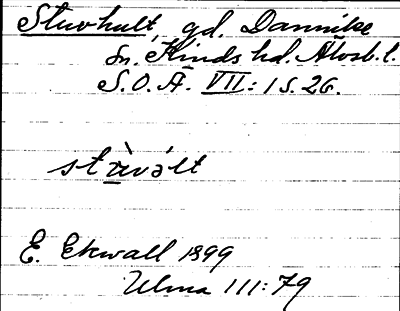 Stuvhult, gd. Dannike
sn. Kinds hd. Älvsb. l.
S.O.Ä. VII:1 s. 26.
E. Ekwall 1899
Ulma 111:79